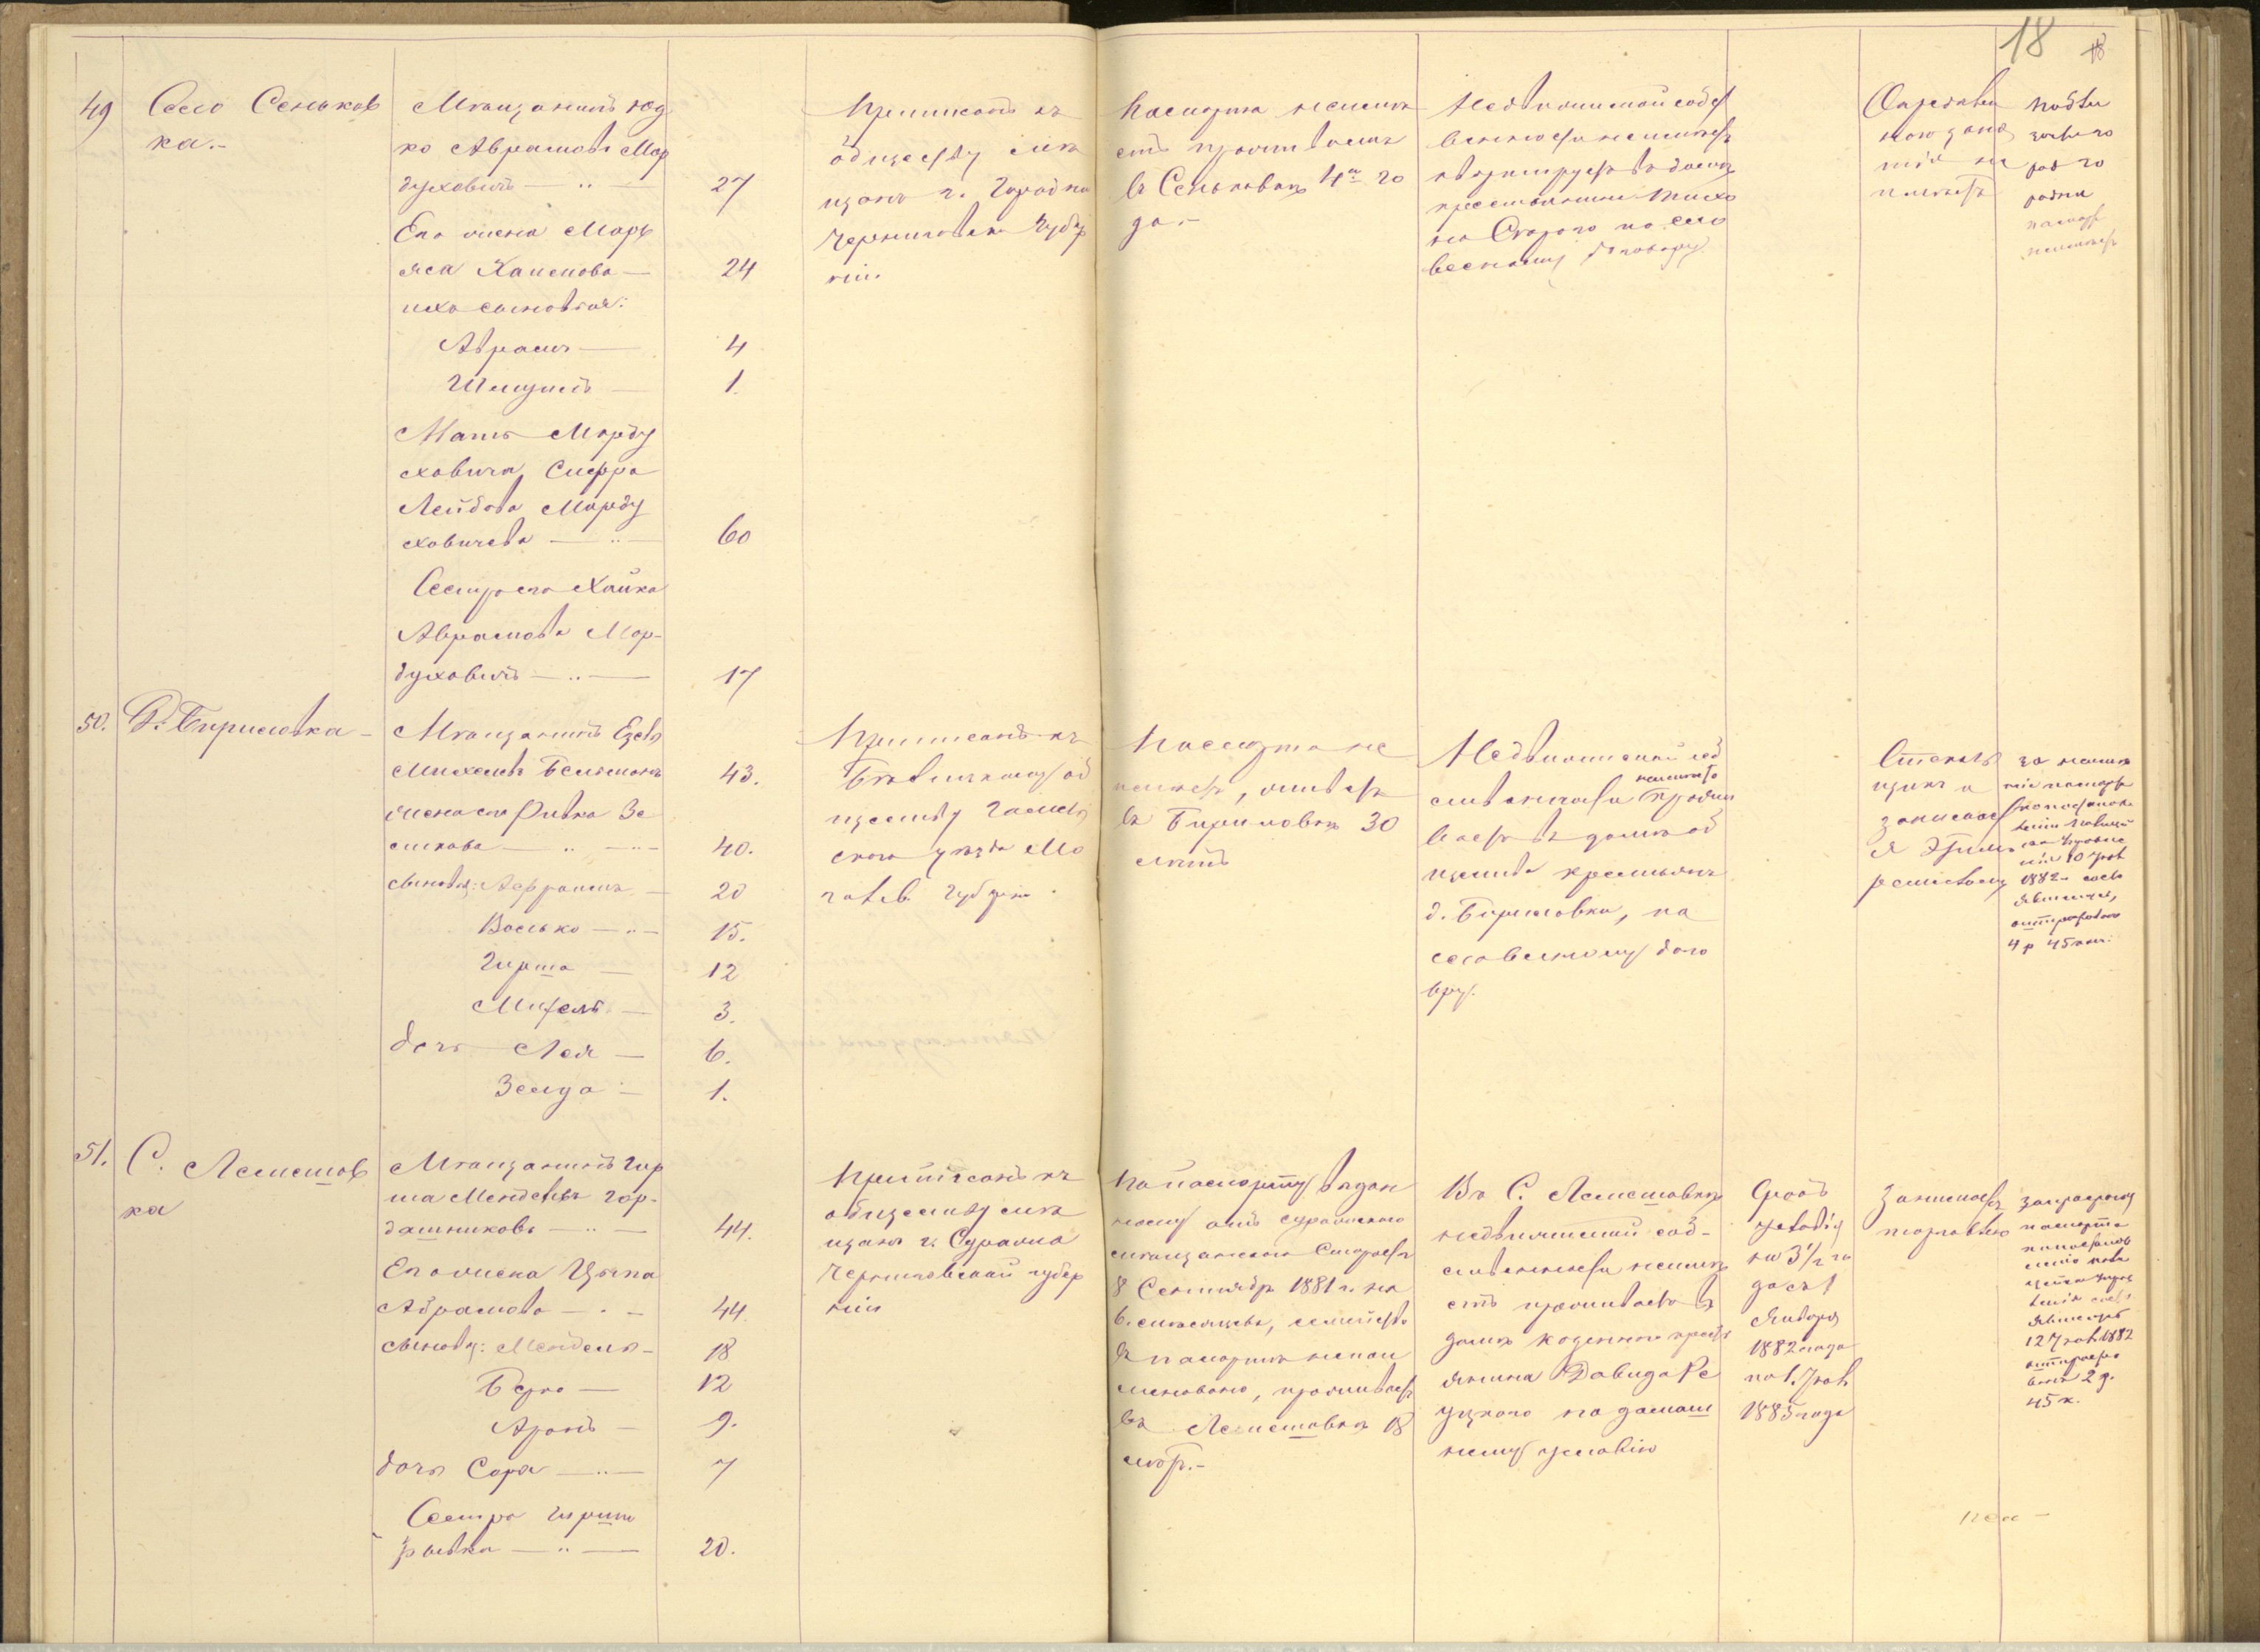 18
49 Село Сеньков
ка.-
Мѣщанинъ Юд
ко Аврамовъ Мор
духовичъ — 27
Его жена Марь
яса Хаимова — 24
ихъ сыновья:
Абрамъ — 4
Шмуилъ — 1.
Мать Морду
ховича, Сифра
Лейбова Морду
ховичева — 60
Сестра его Хайка
Аврамова Мор-
духовичъ — 17
Приписанъ къ
обществу мѣ
щанъ г. Городни
Черниговск. губер
ніи.
Паспорта не имѣ
етъ проживаетъ
въ Сеньковкѣ 4-й го
дъ.-
Недвижимой собст
венности не имѣетъ
квартируетъ въ домѣ
крестьянина Тихо
на Стараго по сло
весному договору
Определен
наго заня
тія не
имѣетъ
50. Д. Бириловка -
Мѣщанинъ Езев
Михелевъ Бельманъ 43.
жена его Ривка За
лмнова — 40.
сыновья: Лефраимъ — 20
Восько — 15.
Гирша — 12
Михель — 3.
дочь Лея — 6.
Зелда — 1.
Приписанъ къ
Бѣлицкому об
ществу Гомель
скаго уѣзда Мо
гилев. губерн.
Паспорта не
имѣетъ, живетъ
въ Бириловкѣ 30
лѣтъ
Недвижимой соб
ственности не имѣетъ прожи
ваетъ въ домѣ об
щества крестьянъ
д. Бириловки, по
словесному дого
вру.
Стеколь
щикъ и
занимает
ся
ремесломъ
за неимѣ
ніе паспорта
10
1882 г. состо
явшемуся,
оштрафованъ
4 р 45 коп.
51. С. Лемешов
ка
Мѣщанинъ Гир
ша Менделевъ Гор-
дашниковъ — 44.
Его жена Цыпа
Абрамова — 44.
сыновья: Мендель - 18
Берко — 12
Аронъ — 9.
дочь Сора — 7
Сестра Гирши
Рывка — 20.
Приписанъ къ
обществу мѣ
щанъ г. Суража
Черниговской губер
ніи
По паспорту выдан
ному отъ Суражскаго
мѣщанскаго Старосты
8 Сентября 1881 г. на
6. мѣсяцевъ, семейство
въ паспортѣ не поим
меновано, проживаетъ
въ Лемешовкѣ 18
лѣтъ.-
Въ С. Лемешовкѣ
недвижимой соб-
ственности не имѣ
етъ проживаетъ въ
домѣ казеннаго кресть
янина Давида Ре
уцкаго по домаш
нему условію
Срокъ
условія
на 3½ го
да съ 1
Января
1882 года
по 1. Іюля
1885 года
Занимается
торговлею
за просрочку
паспорта
по постанов
ленію
явшемуся
1882
оштрафо
ванъ 2 р.
45 к.